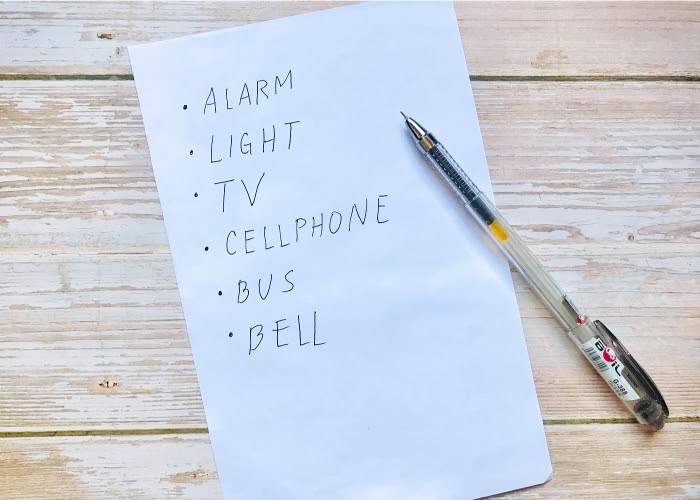 • ALARM
• LIGHT
• TV
• CELLPHONE
• BUS
• BELL
BOIL
G-388